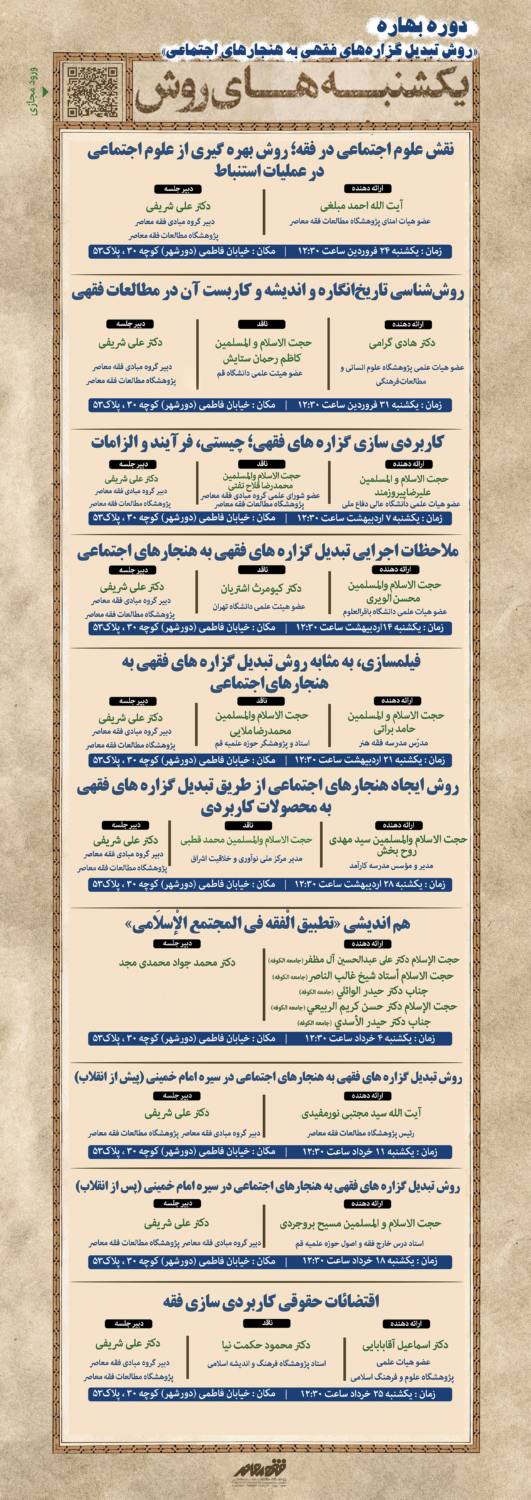 دوره بهاره
«روش تبدیل گزاره‌های فقهی به هنجارهای اجتماعی»
یکشنبه‌های روش
ورود مجازی
نقش علوم اجتماعی در فقه؛ روش بهره گیری از علوم اجتماعی
در عملیات استنباط
ارائه دهنده
دبیر جلسه
آیت الله احمد مبلغی
دکتر علی شریفی
عضو هیات امنای پژوهشگاه مطالعات فقه معاصر
دبیر گروه مبادی فقه معاصر
پژوهشگاه مطالعات فقه معاصر
زمان : یکشنبه ۲۴ فروردین ساعت ۱۲:۳۰ | مکان : خیابان فاطمی (دورشهر) کوچه ۳۰ ، پلاک۵۳
روش‌شناسی تاریخ‌انگاره و اندیشه و کاربست آن در مطالعات فقهی
ارائه دهنده
ناقد
دبیر جلسه
دکتر هادی گرامی
حجت الاسلام و المسلمین
کاظم رحمان ستایش
دکتر علی شریفی
عضو هیات علمی پژوهشگاه علوم انسانی و
مطالعات‌فرهنگی
عضو هیئت علمی دانشگاه قم
دبیر گروه مبادی فقه معاصر
پژوهشگاه مطالعات فقه معاصر
زمان : یکشنبه ۳۱ فروردین ساعت ۱۲:۳۰ | مکان : خیابان فاطمی (دورشهر) کوچه ۳۰ ، پلاک۵۳
کاربردی سازی گزاره های فقهی؛ چیستی، فرآیند و الزامات
ارائه دهنده
ناقد
دبیر جلسه
حجت الاسلام و المسلمین
علیرضا پیروزمند
حجت الاسلام والمسلمین
محمدرضا فلاح تفتی
دکتر علی شریفی
عضو هیات علمی دانشگاه عالی دفاع ملی
عضو شورای علمی گروه مبادی فقه معاصر
پژوهشگاه مطالعات فقه معاصر
دبیر گروه مبادی فقه معاصر
پژوهشگاه مطالعات فقه معاصر
زمان : یکشنبه ۷ اردیبهشت ساعت ۱۲:۳۰ | مکان : خیابان فاطمی (دورشهر) کوچه ۳۰ ، پلاک۵۳
ملاحظات اجرایی تبدیل گزاره های فقهی به هنجارهای اجتماعی
ارائه دهنده
ناقد
دبیر جلسه
حجت الاسلام والمسلمین
محسن الویری
دکتر کیومرث اشتریان
دکتر علی شریفی
عضو هیات علمی دانشگاه باقرالعلوم
عضو هیئت علمی دانشگاه تهران
دبیر گروه مبادی فقه معاصر
پژوهشگاه مطالعات فقه معاصر
زمان : یکشنبه ۱۴ اردیبهشت ساعت ۱۲:۳۰ | مکان : خیابان فاطمی (دورشهر) کوچه ۳۰ ، پلاک۵۳
فیلمسازی، به مثابه روش تبدیل گزاره های فقهی به
هنجارهای‌اجتماعی
ارائه دهنده
ناقد
دبیر جلسه
حجت الاسلام و المسلمین
حامد براتی
حجت الاسلام والمسلمین
محمدرضا ملایی
دکتر علی شریفی
مدرّس مدرسه فقه هنر
استاد و پژوهشگر حوزه علمیه قم
دبیر گروه مبادی فقه معاصر
پژوهشگاه مطالعات فقه معاصر
زمان : یکشنبه ۲۱ اردیبهشت ساعت ۱۲:۳۰ | مکان : خیابان فاطمی (دورشهر) کوچه ۳۰ ، پلاک۵۳
روش ایجاد هنجارهای اجتماعی از طریق تبدیل گزاره های فقهی
به محصولات کاربردی
ارائه دهنده
ناقد
دبیر جلسه
حجت الاسلام والمسلمین سید مهدی
روح بخش
حجت الاسلام والمسلمین محمد قطبی
دکتر علی شریفی
مدیر و مؤسس مدرسه کارآمد
مدیر مرکز ملی نوآوری و خلاقیت اشراق
دبیر گروه مبادی فقه معاصر
پژوهشگاه مطالعات فقه معاصر
زمان : یکشنبه ۲۸ اردیبهشت ساعت ۱۲:۳۰ | مکان : خیابان فاطمی (دورشهر) کوچه ۳۰ ، پلاک۵۳
هم اندیشی «تطبیق الْفقه فی المجتمع الإسلامی»
ارائه دهنده
دبیر جلسه
حجت الإسلام دکتر علی عبدالحسین آل مظفر (جامعه الکوفه)
دکتر محمد جواد محمدی مجد
حجت الاسلام أستاد شیخ غالب الناصر (جامعه الکوفه)
جناب دکتر حیدر الوائلي (جامعه الکوفه)
حجت الإسلام دکتر حسن کریم الربیعي (جامعه الکوفه)
جناب دکتر حیدر الأسدي (جامعه الکوفه)
زمان : یکشنبه ۴ خرداد ساعت ۱۲:۳۰ | مکان : خیابان فاطمی (دورشهر) کوچه ۳۰ ، پلاک۵۳
روش تبدیل گزاره های فقهی به هنجارهای اجتماعی در سیره امام خمینی (پیش از انقلاب)
ارائه دهنده
دبیر جلسه
آیت الله سید مجتبی نورمفیدی
دکتر علی شریفی
رئیس پژوهشگاه مطالعات فقه معاصر
دبیر گروه مبادی فقه معاصر پژوهشگاه مطالعات فقه معاصر
زمان : یکشنبه ۱۱ خرداد ساعت ۱۲:۳۰ | مکان : خیابان فاطمی (دورشهر) کوچه ۳۰ ، پلاک۵۳
روش تبدیل گزاره های فقهی به هنجارهای اجتماعی در سیره امام خمینی (پس از انقلاب)
ارائه دهنده
دبیر جلسه
حجت الاسلام و المسلمین مسیح بروجردی
دکتر علی شریفی
استاد درس خارج فقه و اصول حوزه علمیه قم
دبیر گروه مبادی فقه معاصر پژوهشگاه مطالعات فقه معاصر
زمان : یکشنبه ۱۸ خرداد ساعت ۱۲:۳۰ | مکان : خیابان فاطمی (دورشهر) کوچه ۳۰ ، پلاک۵۳
اقتضائات حقوقی کاربردی سازی فقه
ارائه دهنده
ناقد
دبیر جلسه
دکتر اسماعیل آقابابایی
دکتر محمود حکمت نیا
دکتر علی شریفی
عضو هیات علمی
پژوهشگاه علوم و فرهنگ اسلامی
استاد پژوهشگاه فرهنگ و اندیشه اسلامی
دبیر گروه مبادی فقه معاصر
پژوهشگاه مطالعات فقه معاصر
زمان : یکشنبه ۲۵ خرداد ساعت ۱۲:۳۰ | مکان : خیابان فاطمی (دورشهر) کوچه ۳۰ ، پلاک۵۳
فقه معاصر